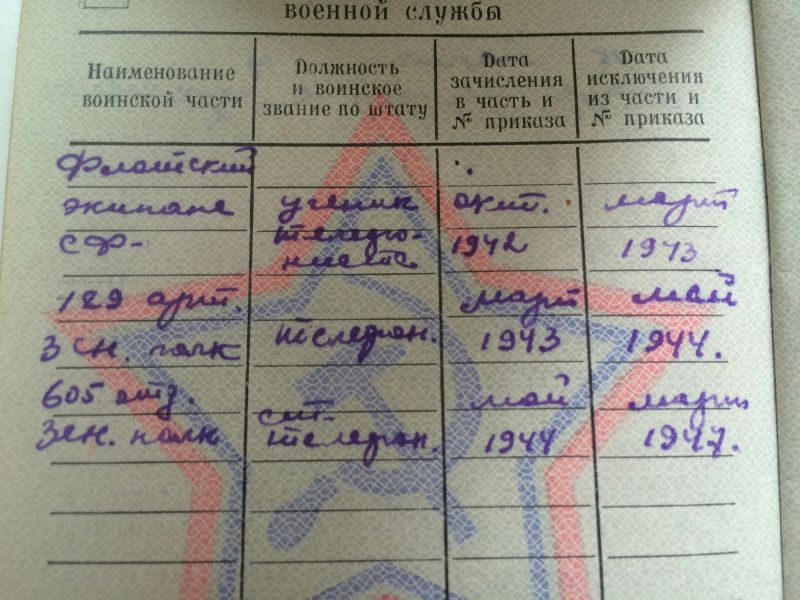 военной службы
Наименование воинской части
Должность и воинское звание по штату
Дата зачисления в часть и № приказа
Дата исключения из части и № приказа
Флотский
экипаж ученик окт. март
СФ- телефо- 1942 1943
ниста
129 арт. март май
Зен. полк телефон. 1943 1944.
605 отд. май март
Зен. полк ст. телефон. 1944 1947.